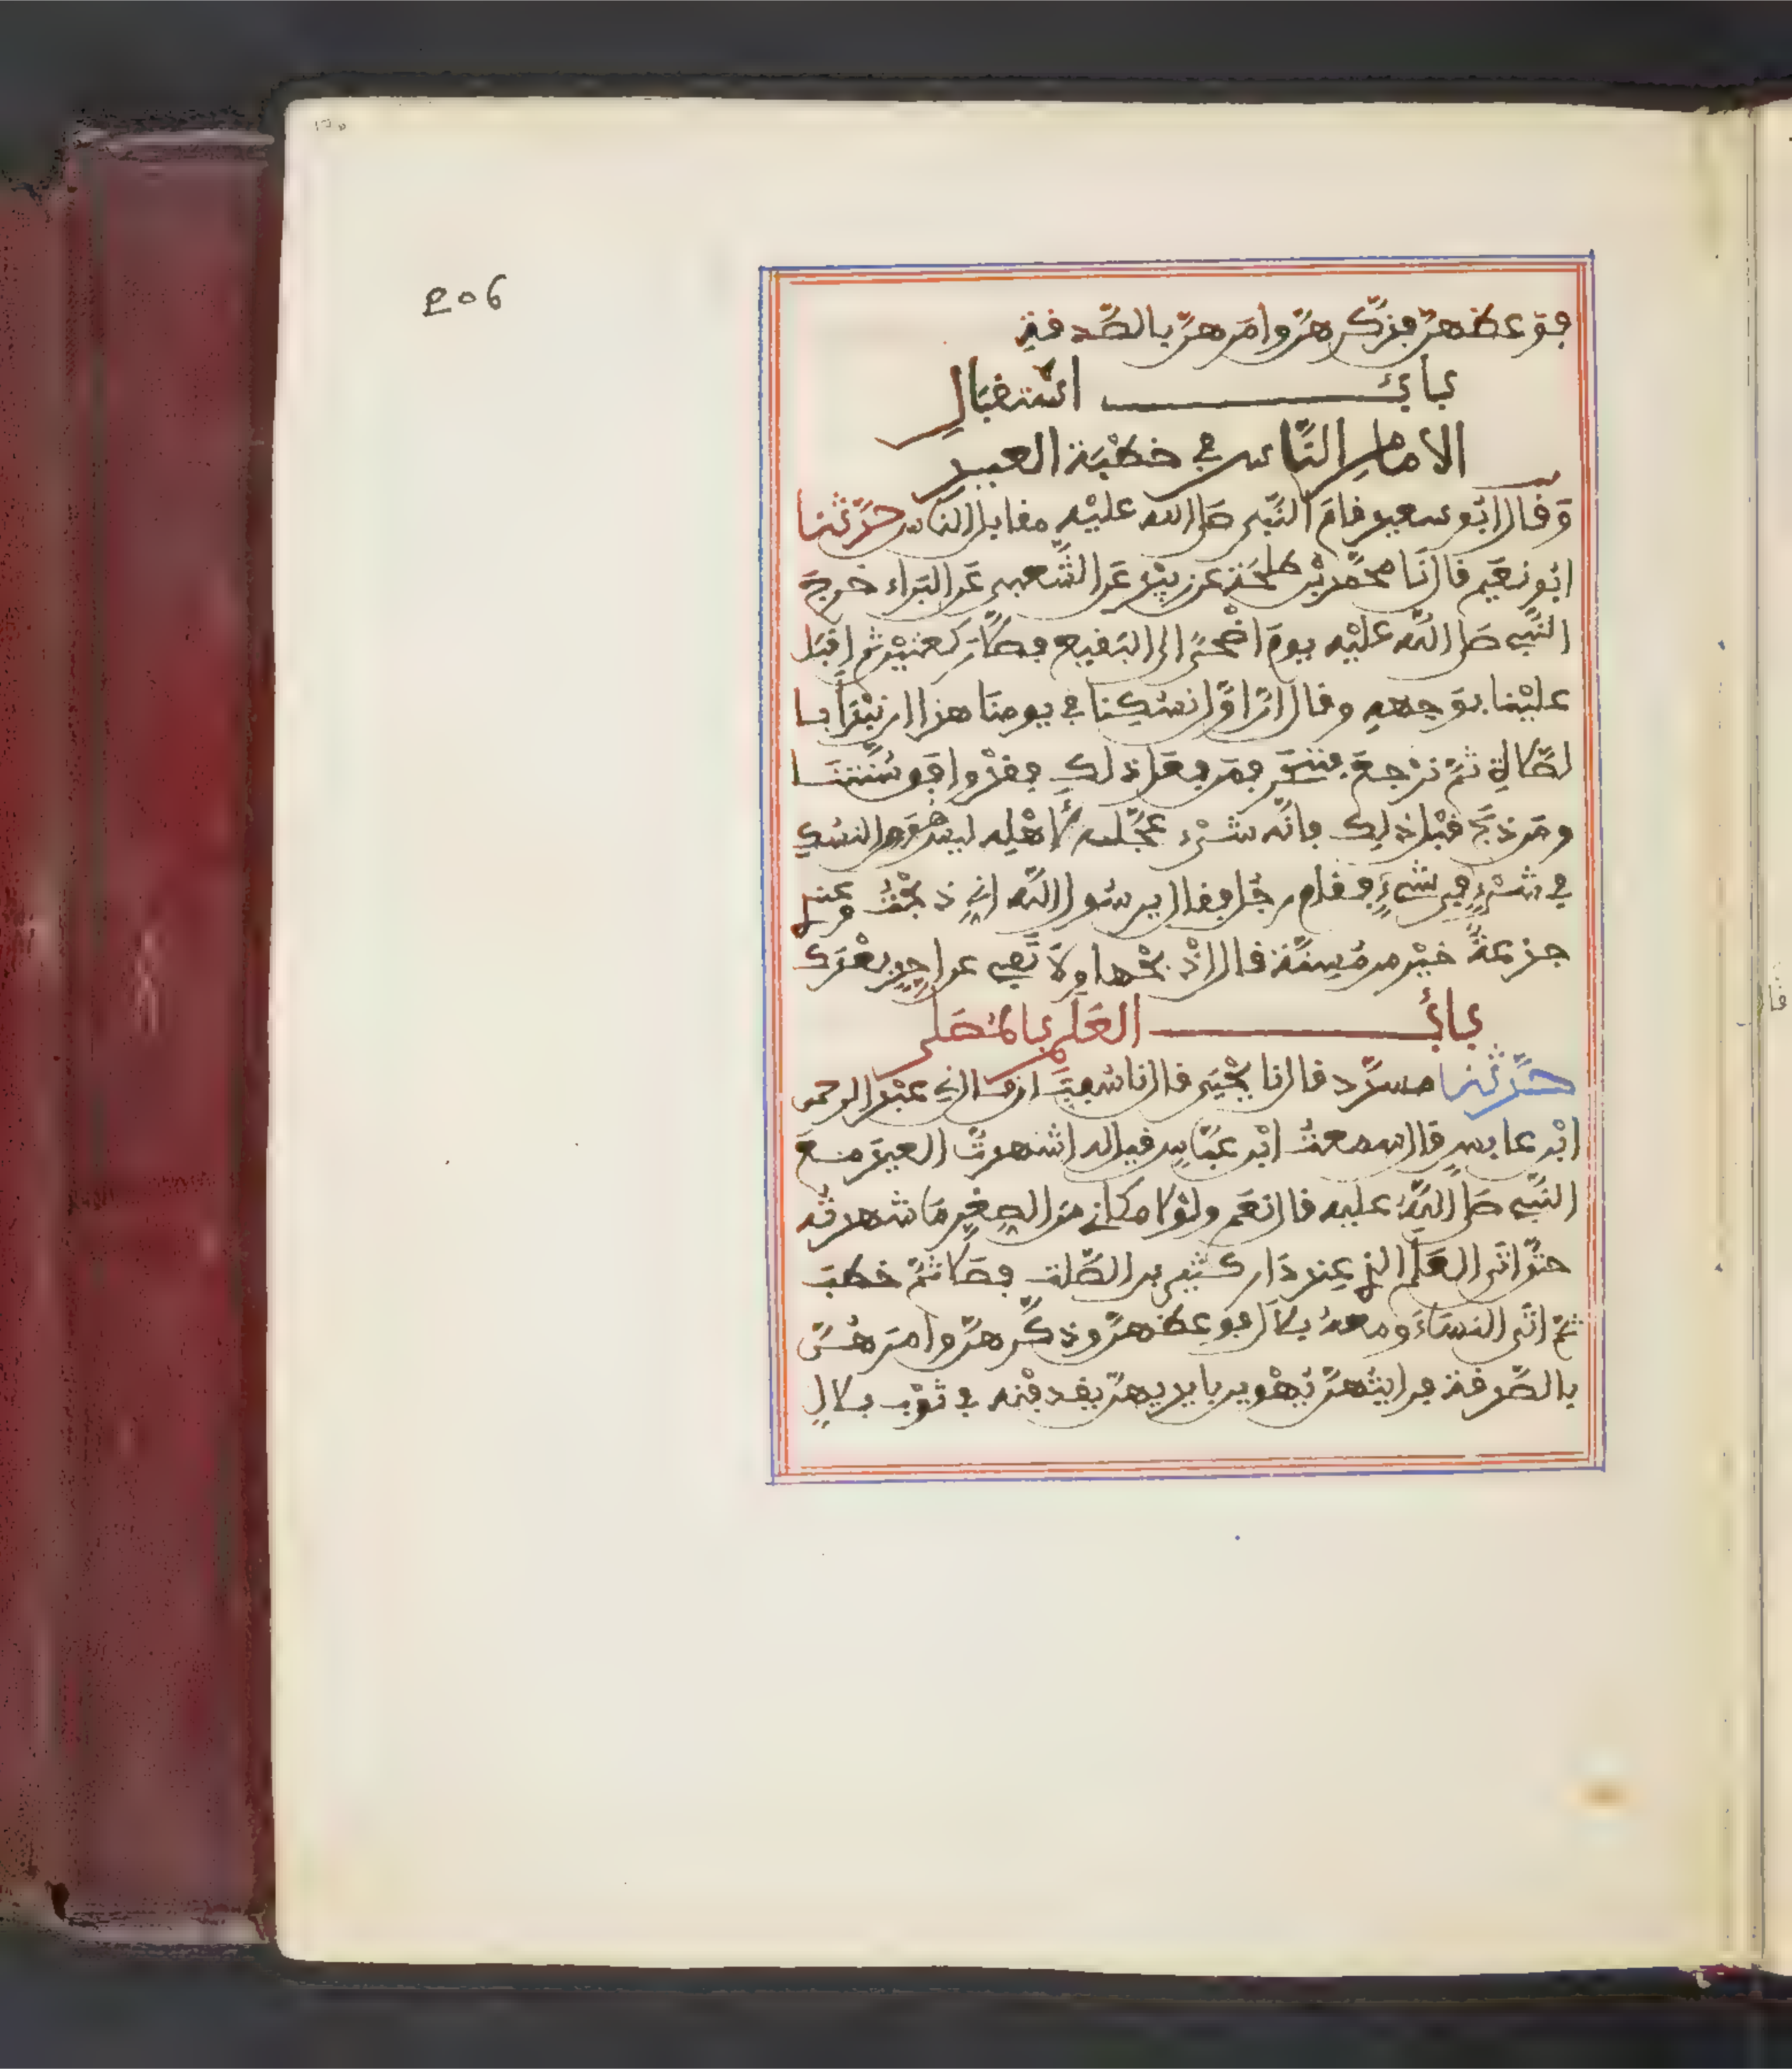 206
فوعظهنّ فذكّرهنّ وامرهنّ بالصّدقة
باب استقبال
الامام الناس في خطبة العيد
وقال ابو سعيد قام النّبي صلى الله عليه مقابل الناس حدّثنا
ابو نعيم قال نا محمّد بن طلحة عن زبيد عن الشّعبي عن البراء خرج
النّبي صلى الله عليه يوم اضحى الى البقيع فصلّى ركعتين ثم اقبل
علينا بوجهه وقال انّ اوّل نسكنا في يومنا هذا ان نبدأ با
لصّلاة ثمّ نرجع فننحر فمن فعل ذلك فقد وافق سنّتنا
ومن ذبح قبل ذلك فانّه شيء عجّله لأهله ليس هو من النسك
في شيء في شيء فقام رجل فقال يرسول الله اني ذبحت وعندي
جذعة خير من مسنّة قال اذبحها ولا تفي عن احد بعدك
باب العلم بالمصلى
حدّثنا مسدّد قال نا يحيى قال نا سفين قال ني عبد الرحمن
ابن عابس قال سمعت ابن عبّاس قيل له اشهدت العيد مع
النّبي صلى الله عليه قال نعم ولولا مكاني من الصغر ما شهدته
حتّى اتى العلم الذي عند دار كثير بن الصّلت فصلى ثمّ خطب
ثمّ اتى النساء ومعه بلال فوعظهنّ وذكّرهنّ وامرهنّ
بالصّدقة فرايتهنّ يهوين بايديهنّ يقذفنه في ثوب بلال